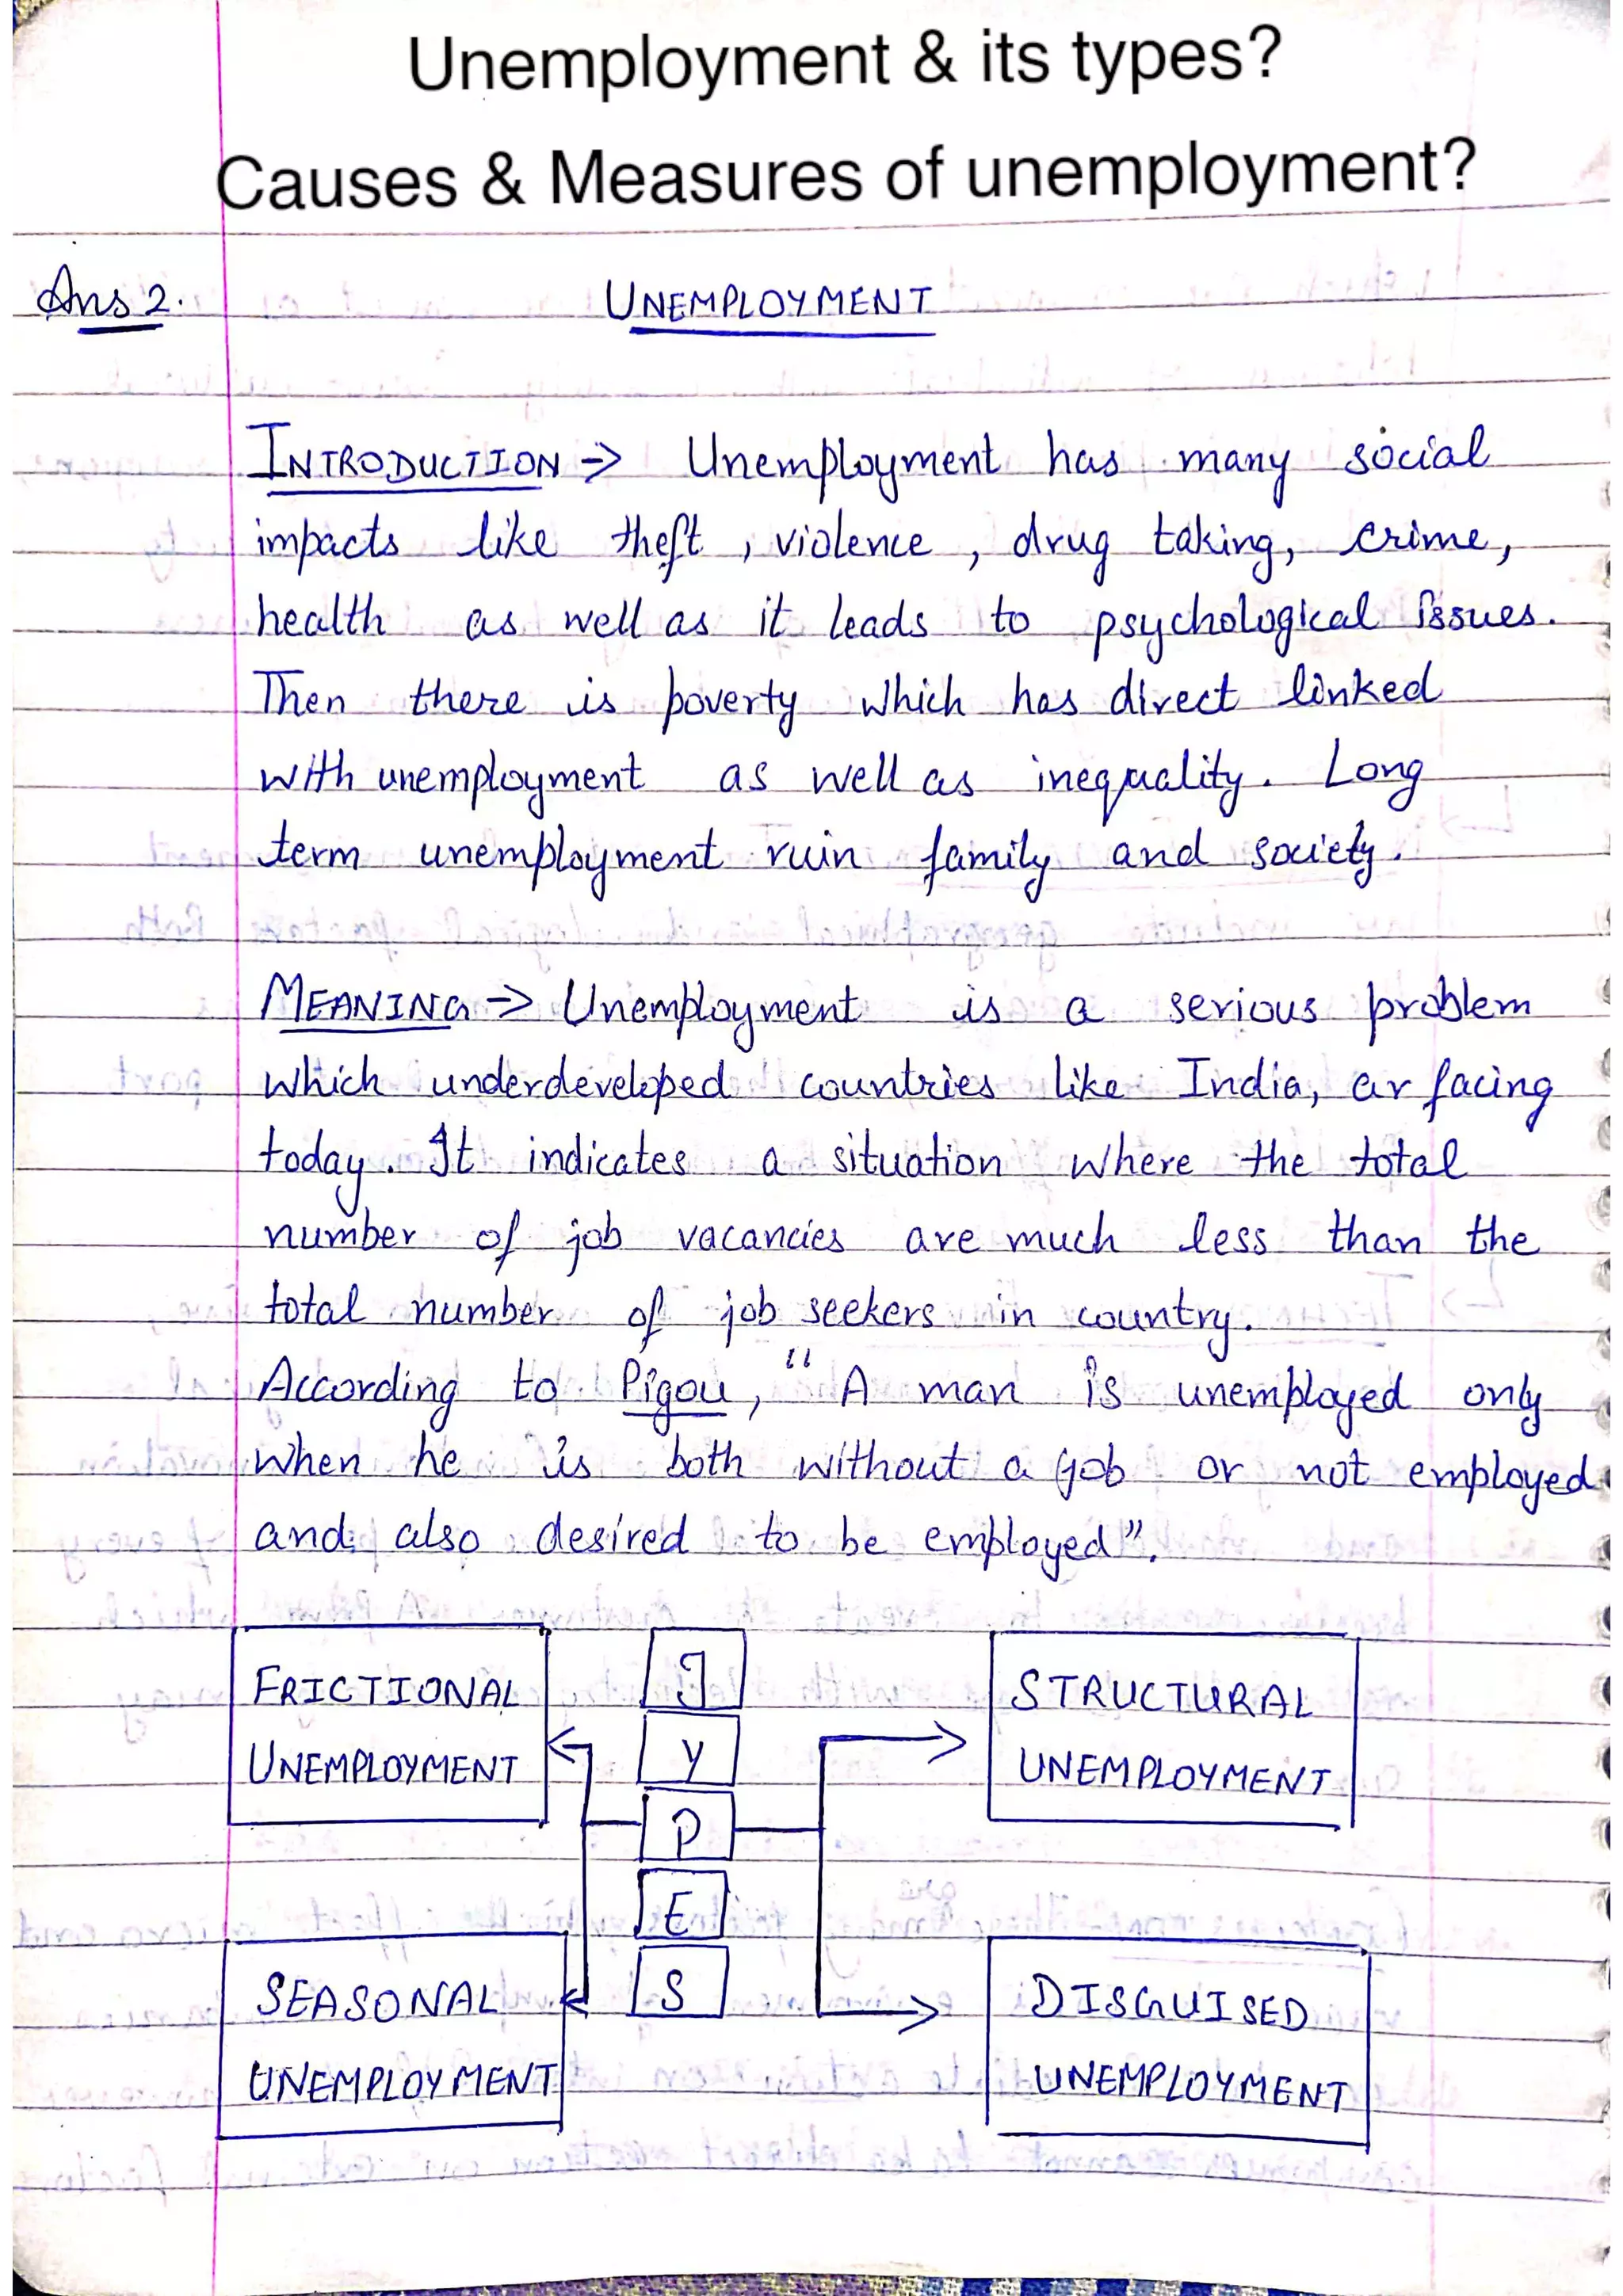 Unemployment & its types?
Causes & Measures of unemployment?
Ans 2.
UNEMPLOYMENT
INTRODUCTION → Unemployment has many social
impacts like theft, violence, drug taking, crime,
health as well as it leads to psychological issues.
Then there is poverty which has direct linked
with unemployment as well as inequality. Long
term unemployment ruin family and society.
MEANING → Unemployment is a serious problem
which underdeveloped countries like India, ar facing
today. It indicates a situation where the total
number of job vacancies are much less than the
total number of job seekers in country.
According to Pigou, "A man is unemployed only
when he is both without a job or not employed
and also desired to be employed".
FRICTIONAL
UNEMPLOYMENT
T
Y
P
E
S
STRUCTURAL
UNEMPLOYMENT
SEASONAL
UNEMPLOYMENT
DISGUISED
UNEMPLOYMENT